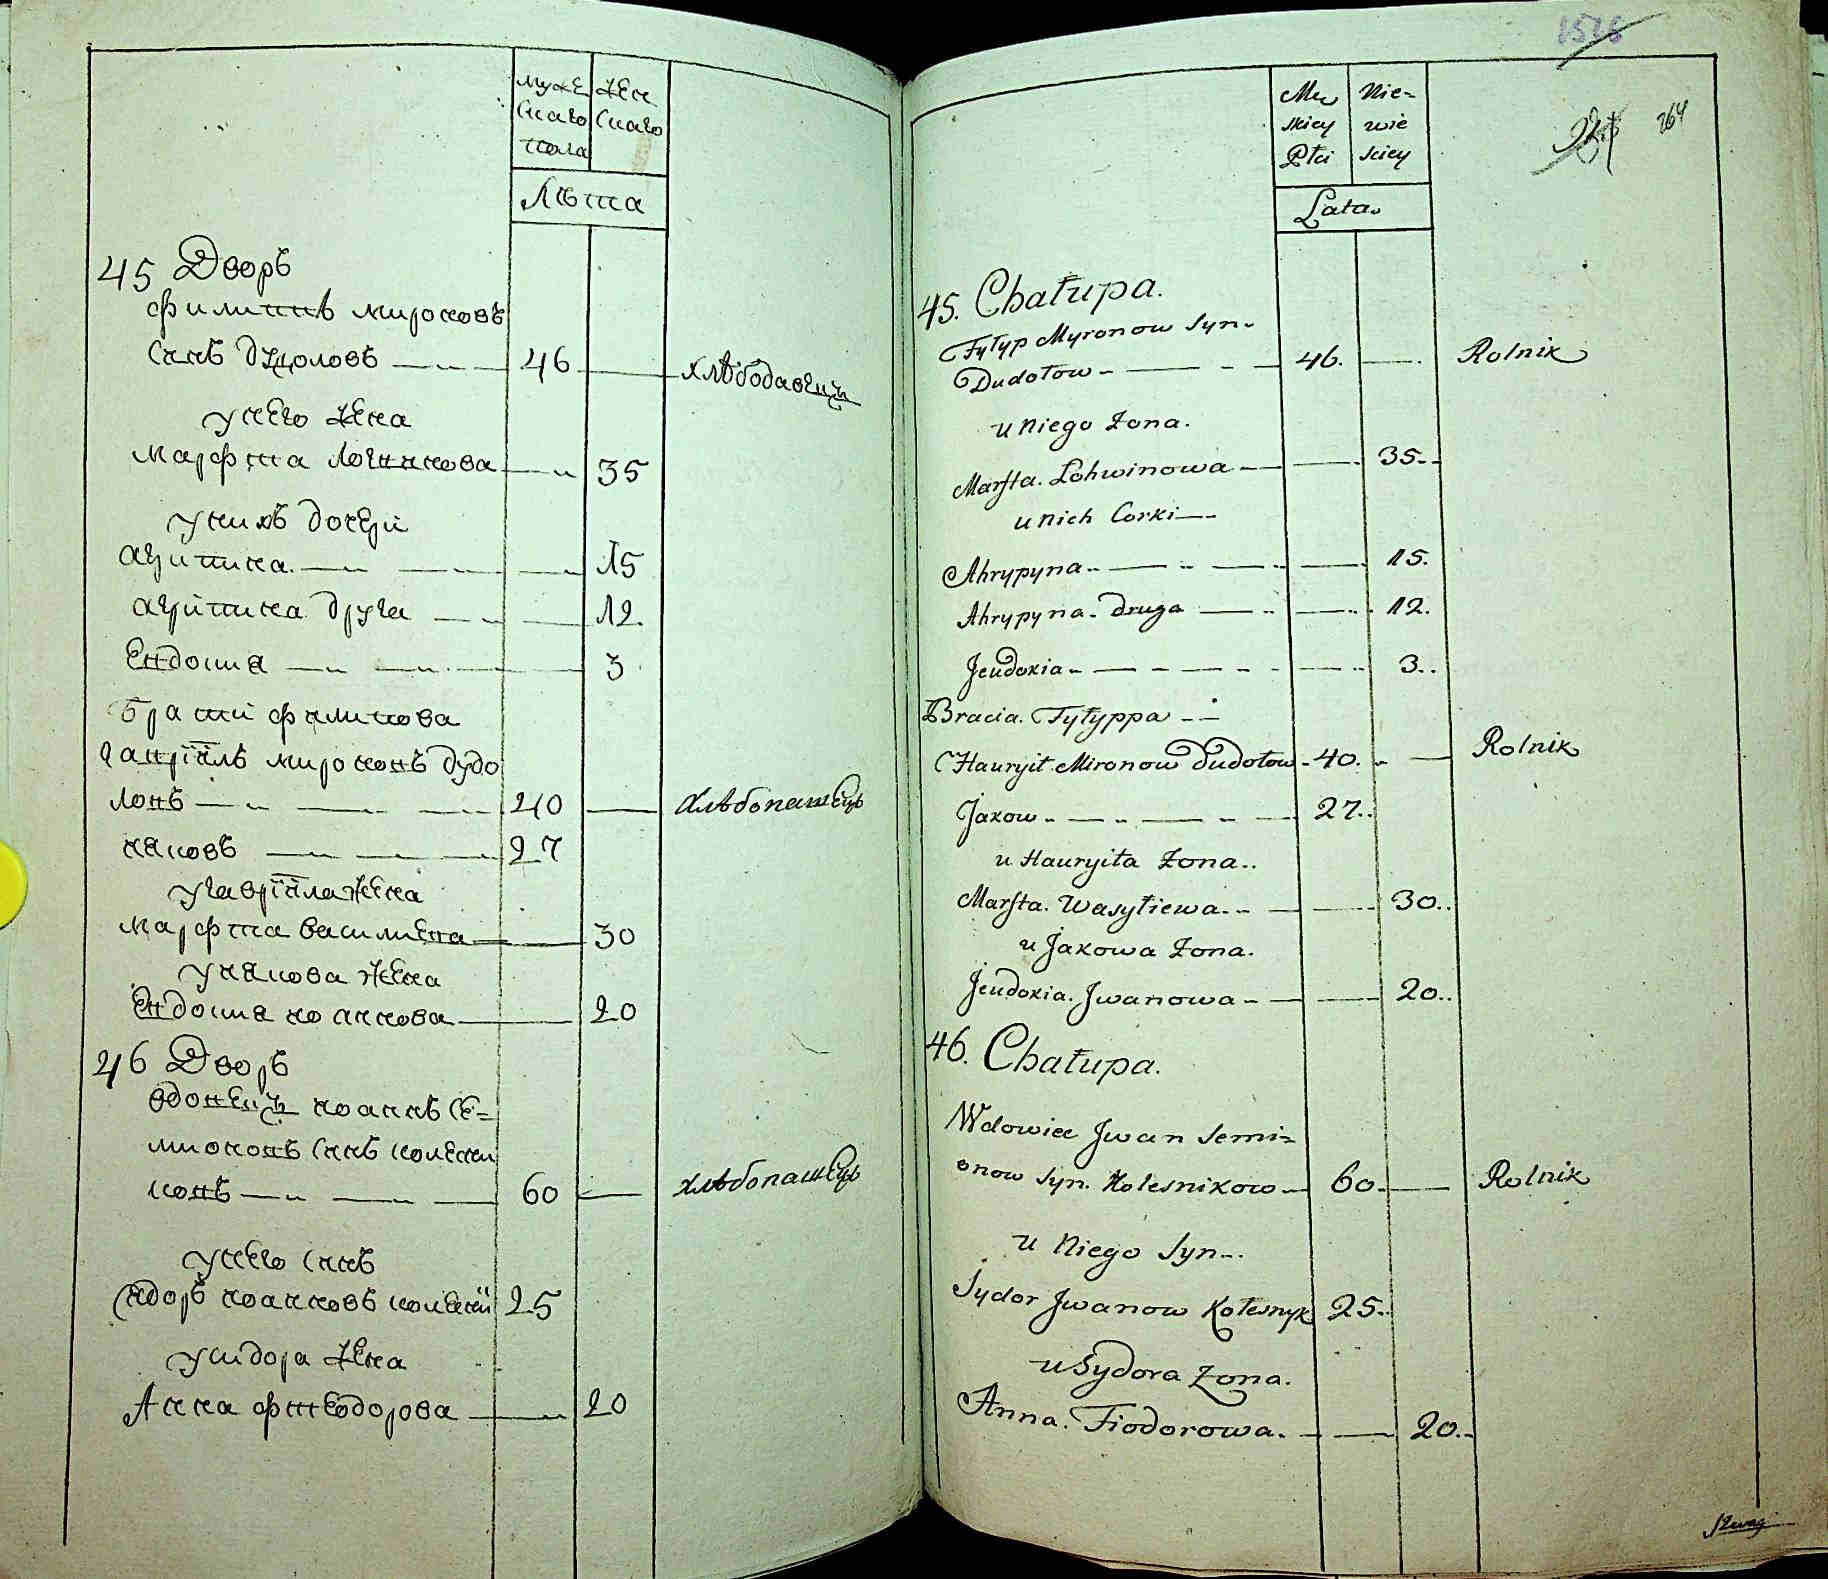 муже
скаго
пола
жен
скаго
Лѣта
45 Дворъ
филиппъ мироновъ
сынъ дудоловъ 46 хлѣбопашецъ
у него жена
марфта логвинова 35
у нихъ дочери
агрипина 15
агрипина друга 12
Евдокия 3
братїи филипова
гавріилъ мироновъ дудо
ловъ 40 хлѣбопашецъ
яковъ 27
у гавріила жена
марфта василиева 30
у якова жена
Евдокия иоаннова 20
46 Дворъ
вдовецъ иоаннъ се=
мионовъ сынъ колесни
ковъ 60 хлѣбопашецъ
у него сынъ
сидоръ иоанновъ колесни 25
у сидора жена
Анна фтеодорова 20
1515
264
Mę
skiey
Płci
Nie=
wie
sciey
Lata
45. Chałupa.
Fyłyp Myronow Syn
Dudołow 46. Rolnik
u niego Żona.
Marfta. Lohwinowa 35.
u nich Corki
Ahrypyna 15.
Ahrypyna. druga 12.
Jeudokia 3.
Bracia. Fyłyppa
Hauryił Mironow Dudołow 40. Rolnik
Jakow 27.
u Hauryiła Żona.
Marfta. Wasyłiewa. 30.
u Jakowa Żona.
Jeudokia. Jwanowa 20.
46. Chałupa.
Wdowiec Jwan Semi=
onow Syn. Kolesnikow 60. Rolnik
u Niego Syn.
Sydor Jwanow Kołesnyk 25.
u Sydora Żona.
Anna. Fiodorowa. 20.